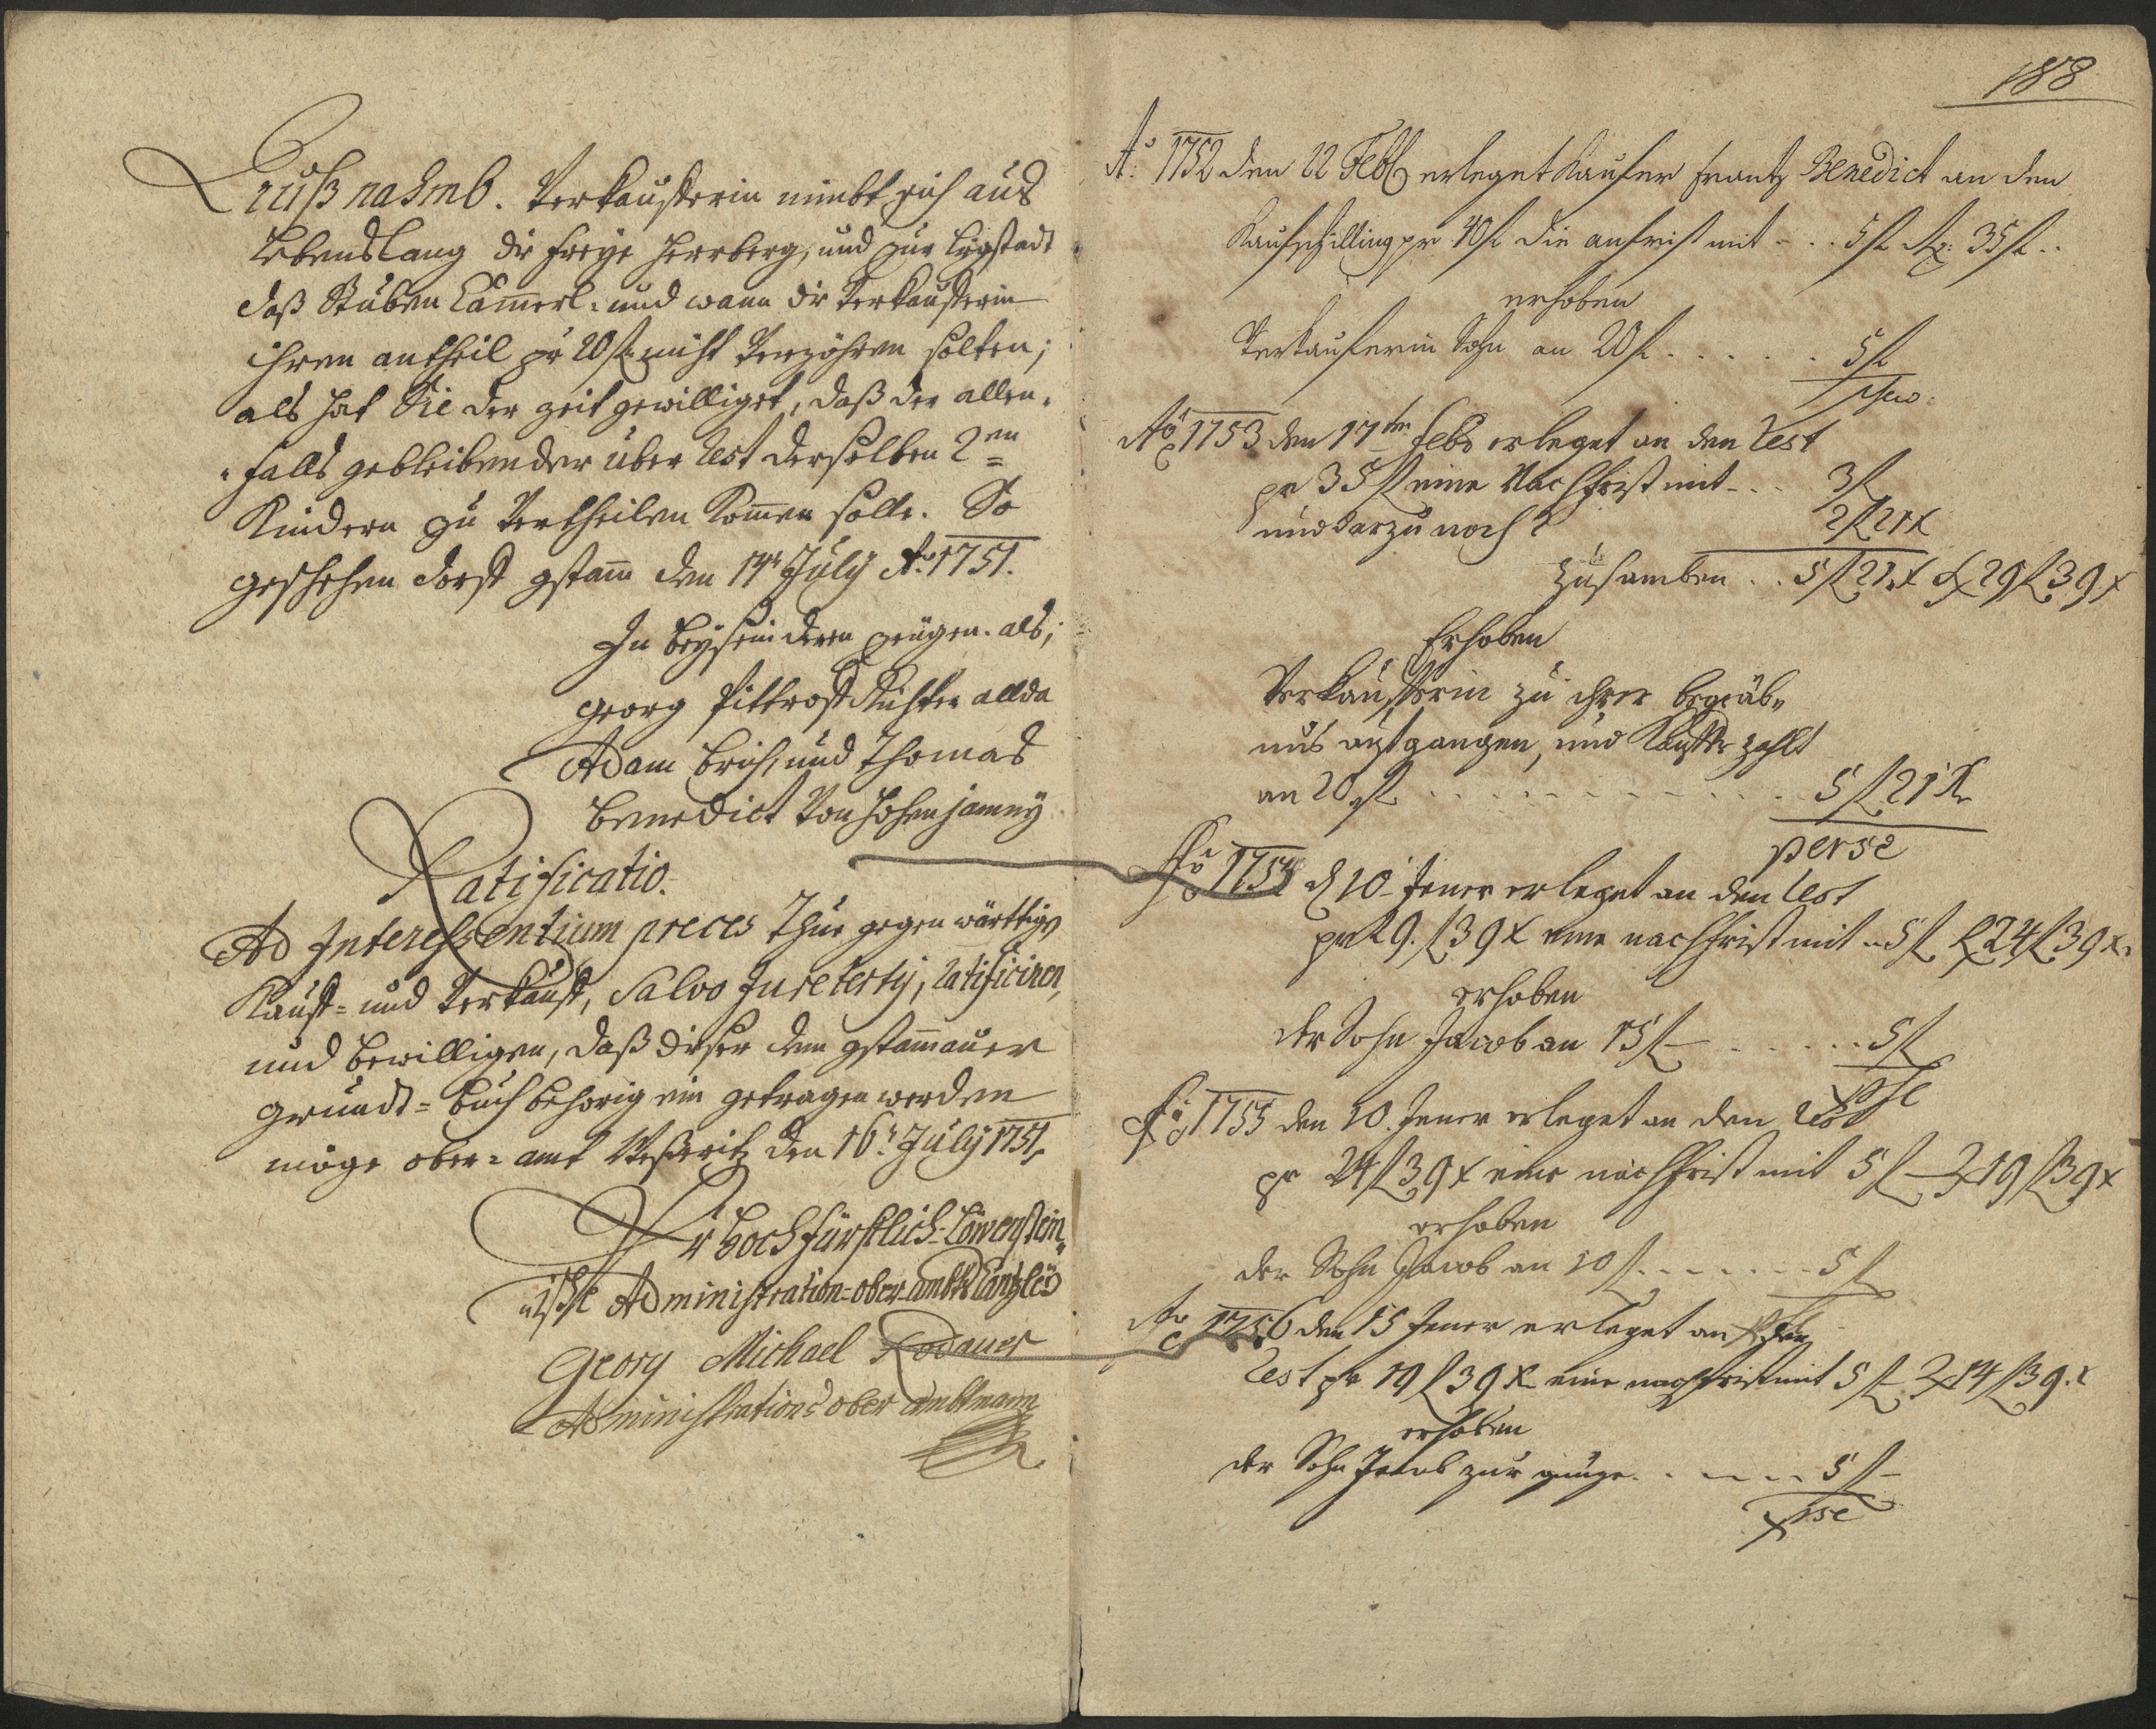 Außnahmb. Verkaufferin nimbt sich aus
lebenslang die freye Herrberg, und zur ligstadt
daß Stuben Cammerl. und wann die Verkaufferin
ihren antheil pr 20 fl nicht verzöhren solten;
als hat Sie der zeit gewilliget, daß der allen-
falls gebleibender über Rest derselben 2en
Kindern zu vertheilen komen solle. So
geschehen dorff gstam den 14t July Ao 1751.
In beysein deren zeugen. als;
Georg Pittroff Richter allda
Adam und Thomas
Benedict von Hohenjamny
Ratificatio.
Ad Interessentium preces Thue gegen wärttige
Kauff- und Verkauff, Salvo Jure tertij, ratificiren,
und bewilligen, daß dieser dem gstamauer
grundt-buch behorig ein getragen werden
möge ober-amt Weßeritz den 16t July 1751
Hochfürstlich-Löwenstein-
ische Administration-ober-ambts Cantzley
Georg Michael Rodauer
Administrations ober ambtmann
188
Ao 1752 den 22 Feb erleget Kaufer Frantz Benedict an den
Kaufschilling pr 40 fl die anfrist mit - . . 5 fl R: 35 fl . .
erhoben
Verkauferin Sohn an 20 fl . . . . . . 5 fl
Ao 1753 den 17ten Feb erleget an den Rest
pr 35 fl eine Nachfrist mit - . . 3 fl
und darzu noch 2 fl 21 x
zusamben . . 5 fl 21 x R 29 fl 39 x
Erhoben
Verkaufferin zu ihrer begräb-
nus außgangen, und Kauffer zahlt
an 20 fl . . . . . . . . . . 5 fl 21 Kr
perse
Ao 1754 d 10 Jener erleget an den Rest
pr 29 fl 39 x eine nachfrist mit .. 5 fl R 24 fl 39 x
erhoben
der Sohn Jacob an 15 fl - . . . . . . 5 fl
pse
Ao 1755 den 20. Jener erleget an den Rest
pr 24 fl 39 x eine nachfrist mit 5 fl - R 19 fl 39 x
erhoben
der Sohn Jacob an 10 fl . . . . . . 5 fl
Ao 1756 den 15 Jener erleget an den
Rest pr 19 fl 39 x eine nachfrist mit 5 fl - R 14 fl 39 x
erhoben
der Sohn Jacob zur genuge . . . . . 5 fl -
pse